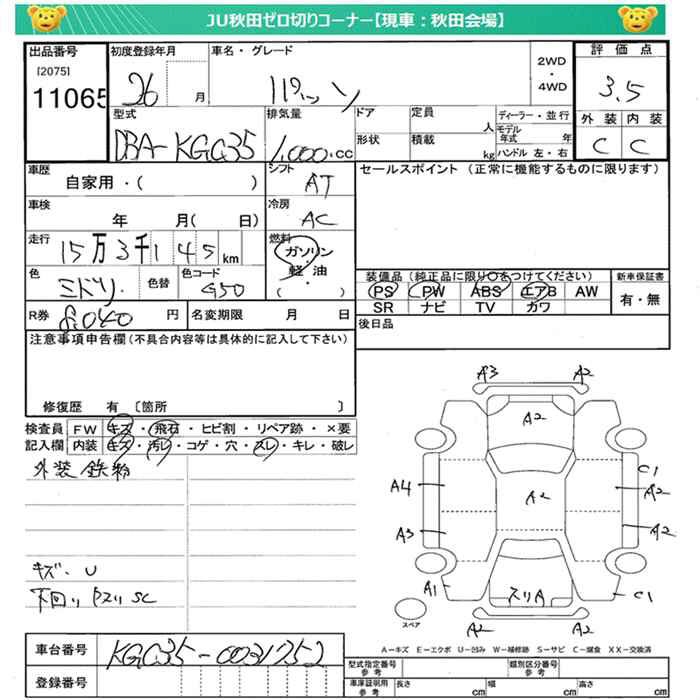 JU秋田ゼロ切りコーナー【現車：秋田会場】
出品番号
[2075]
11065
初度登録年月
26 月
車名・グレード
2WD
・
4WD
評価点
3.5
外装 内装
C C
型式
DBA-KGC35
排気量
1,000.cc
ドア
形状
定員
人
積載
kg
ディーラー・並行
モデル年式 年
ハンドル 左・右
車歴
自家用・( )
シフト
AT
車検
年 月( 日)
冷房
AC
走行
15万3千145km
燃料
ガソリン
・
軽油
( )
色
ミドリ.
色替
色コード
G50
R券
8,040円
名変期限 月 日
セールスポイント (正常に機能するものに限ります)
装備品 (純正品に限り○をつけてください)
PS PW ABS エアB AW
SR ナビ TV カワ
新車保証書
有・無
後日品
注意事項申告欄(不具合内容等は具体的に記入して下さい)
修復歴 有 〔箇所 〕
検査員記入欄
FW キズ・飛石・ヒビ割・リペア跡・×要
内装 キズ・汚レ・コゲ・穴・スレ・キレ・破レ
外装 鉄粉
キズ・U
下回り サビ SC
A3 A2
A2
C1
A4 A2 A2
A3 A2
A1 スリA C1
A2 A2
スペア
A―キズ E―エクボ U―凹み W―補修跡 S―サビ C―腐食 XX―交換済
車台番号
KGC35-0031752
登録番号
型式指定番号
参考
類別区分番号
参考
車庫証明用
参考
長さ cm
幅 cm
高さ cm